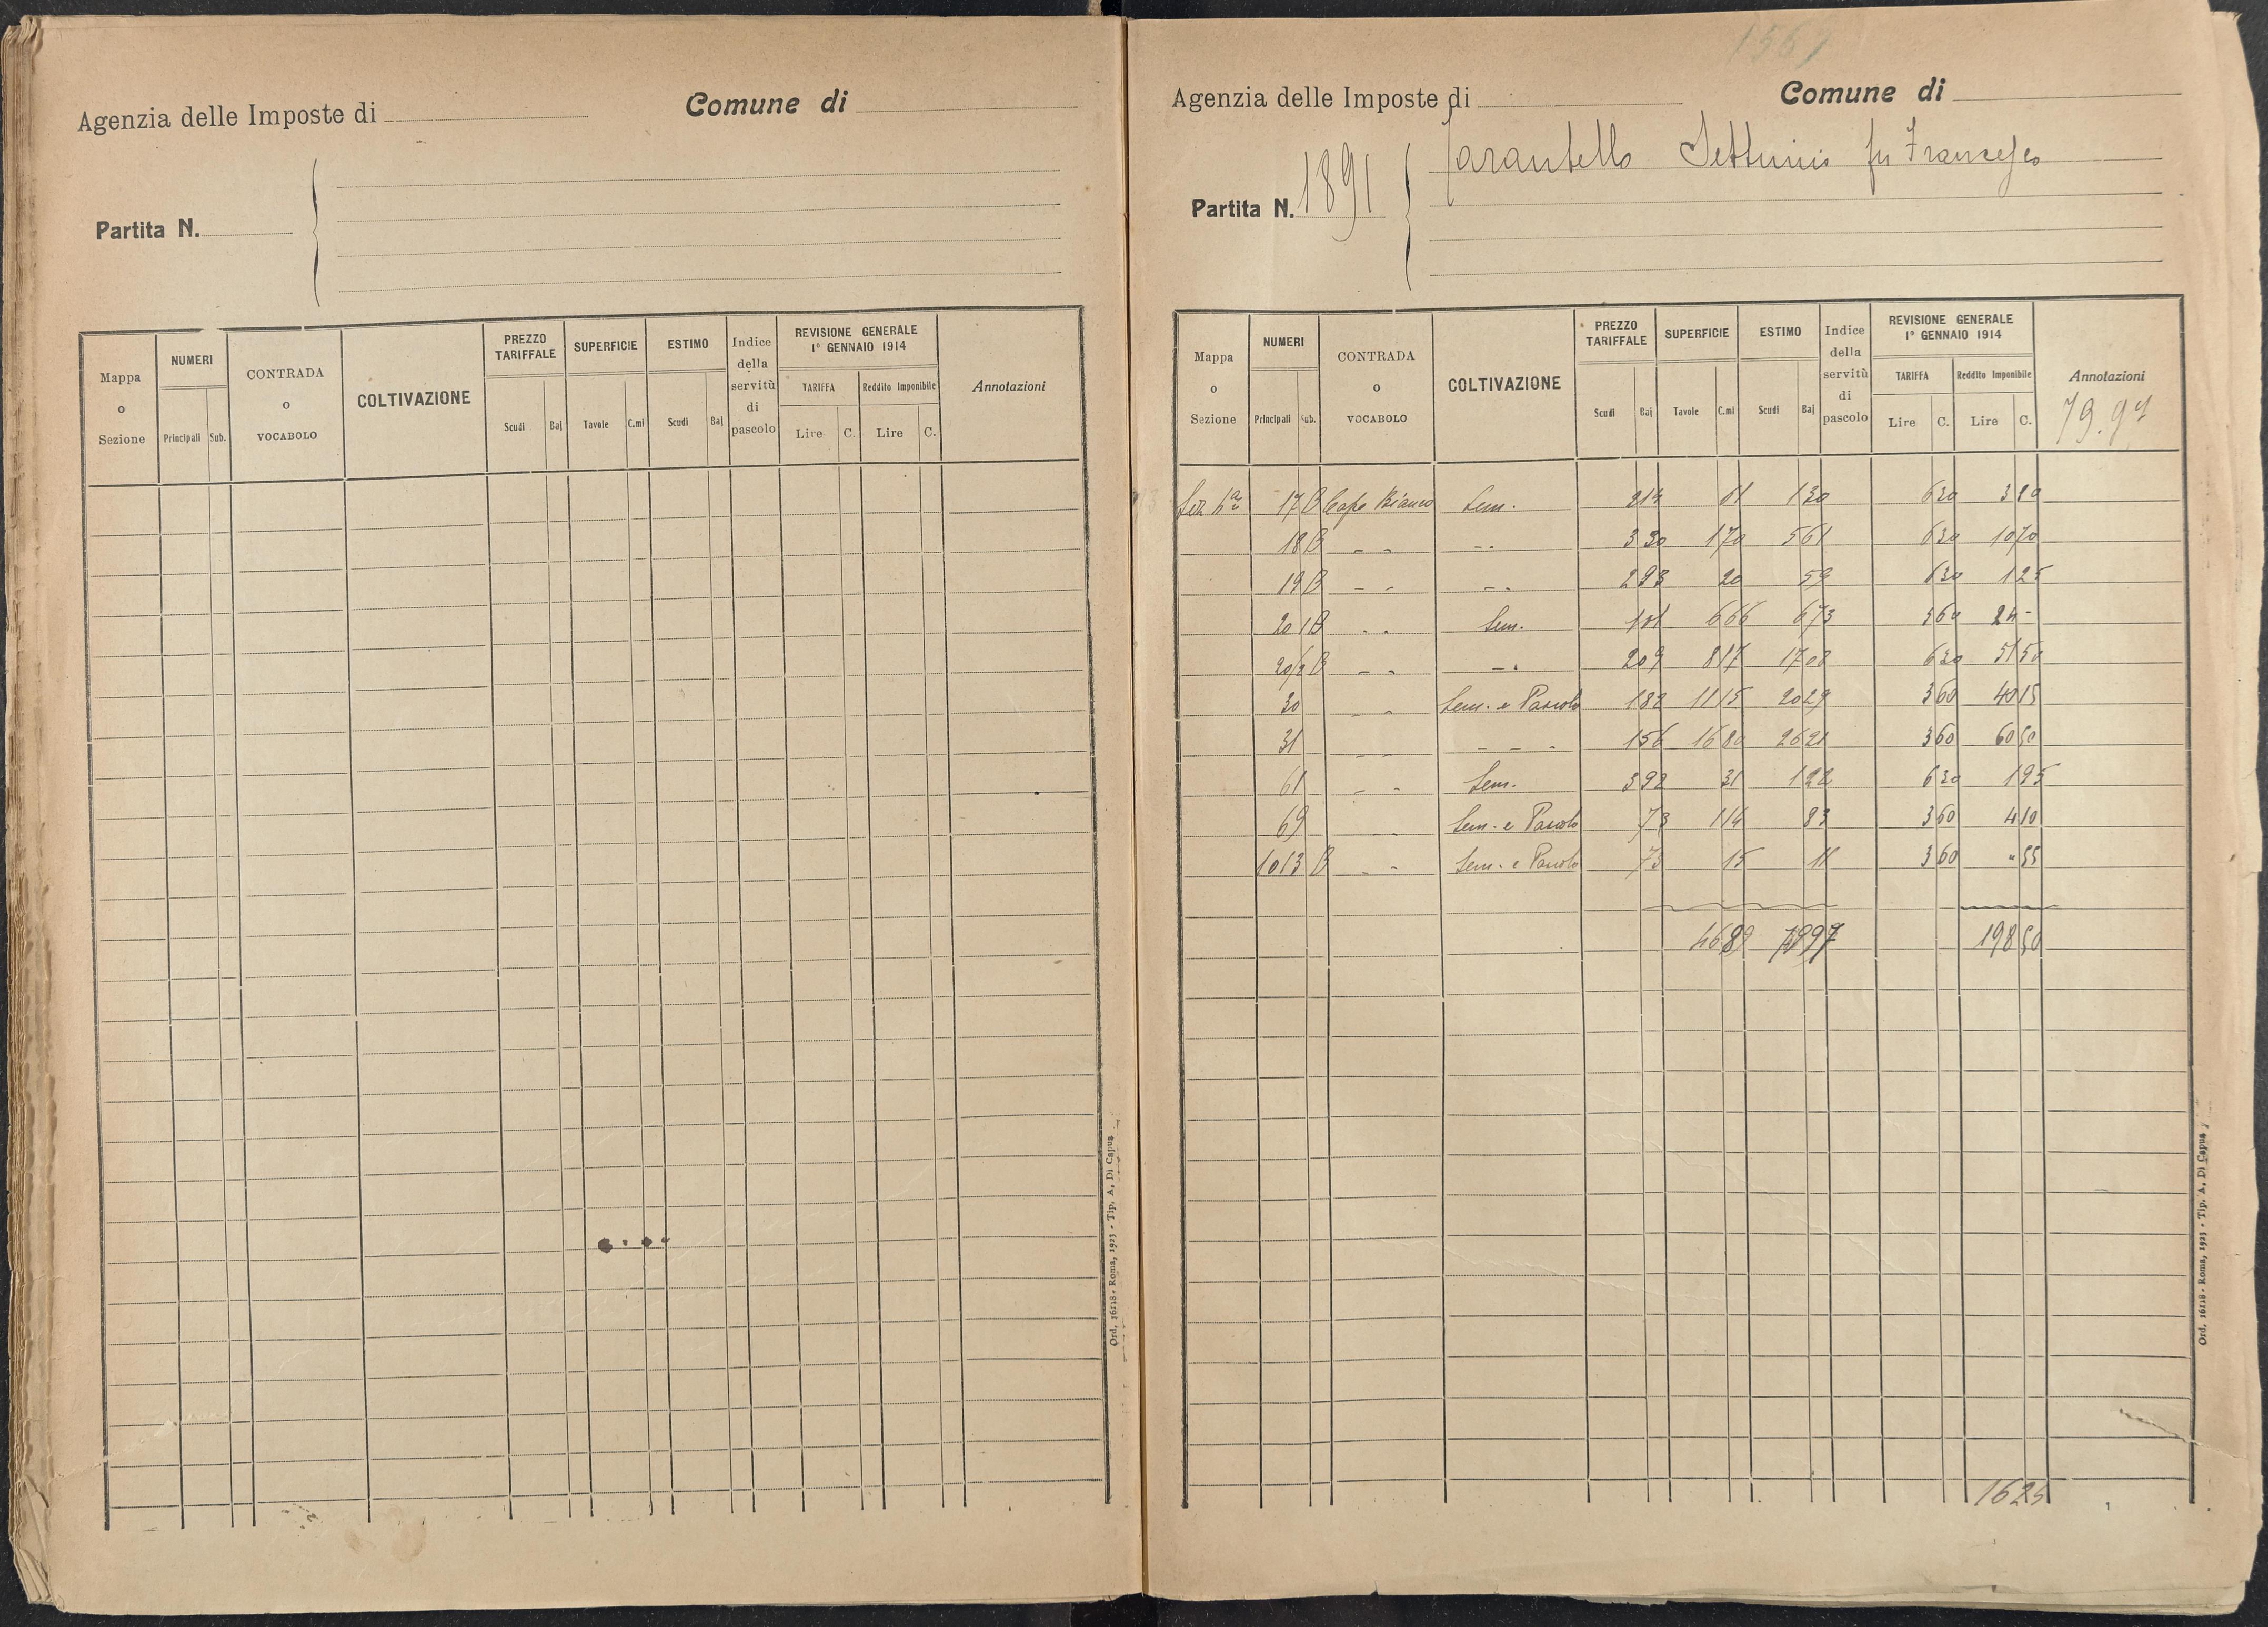 Agenzia delle Imposte di
Comune di
Partita N.
Mappa o Sezione
NUMERI
Principali
Sub.
CONTRADA o VOCABOLO
COLTIVAZIONE
PREZZO TARIFFALE
Scudi
Baj
SUPERFICIE
Tavole
C.mi
ESTIMO
Scudi
Baj
Indice della servitù di pascolo
REVISIONE GENERALE
1° GENNAIO 1914
TARIFFA
Reddito Imponibile
Lire
C.
Lire
C.
Annotazioni
Ord. 16118 - Roma, 1923 - Tip. A. Di Capua
1567
Agenzia delle Imposte di
Comune di
Tarantello Settimio fu Francesco
Partita N. 1891
Mappa o Sezione
NUMERI
Principali
Sub.
CONTRADA o VOCABOLO
COLTIVAZIONE
PREZZO TARIFFALE
Scudi
Baj
SUPERFICIE
Tavole
C.mi
ESTIMO
Scudi
Baj
Indice della servitù di pascolo
REVISIONE GENERALE
1° GENNAIO 1914
TARIFFA
Reddito Imponibile
Lire
C.
Lire
C.
Annotazioni
79.97
Sez 17 B Capo Bianco Sem. 214 61 130 630 380
18 B - - -- 330 170 561 630 1070
19 B - - -- 293 20 59 630 125
20 1 B - - Sem. 101 666 673 360 24 -
20/2 B - - -- 209 817 1708 630 5150
30 - - Sem. e Pascolo 182 1115 2029 360 4015
31 - - - - - 156 1680 2621 360 6050
61 - - Sem. 392 31 122 630 195
69 - - Sem. e Pascolo 73 114 83 360 410
1013 B - - Sem. e Pascolo 73 15 11 360 " 55
4689 7997 19850
1625
Ord. 16118 - Roma, 1923 - Tip. A. Di Capua